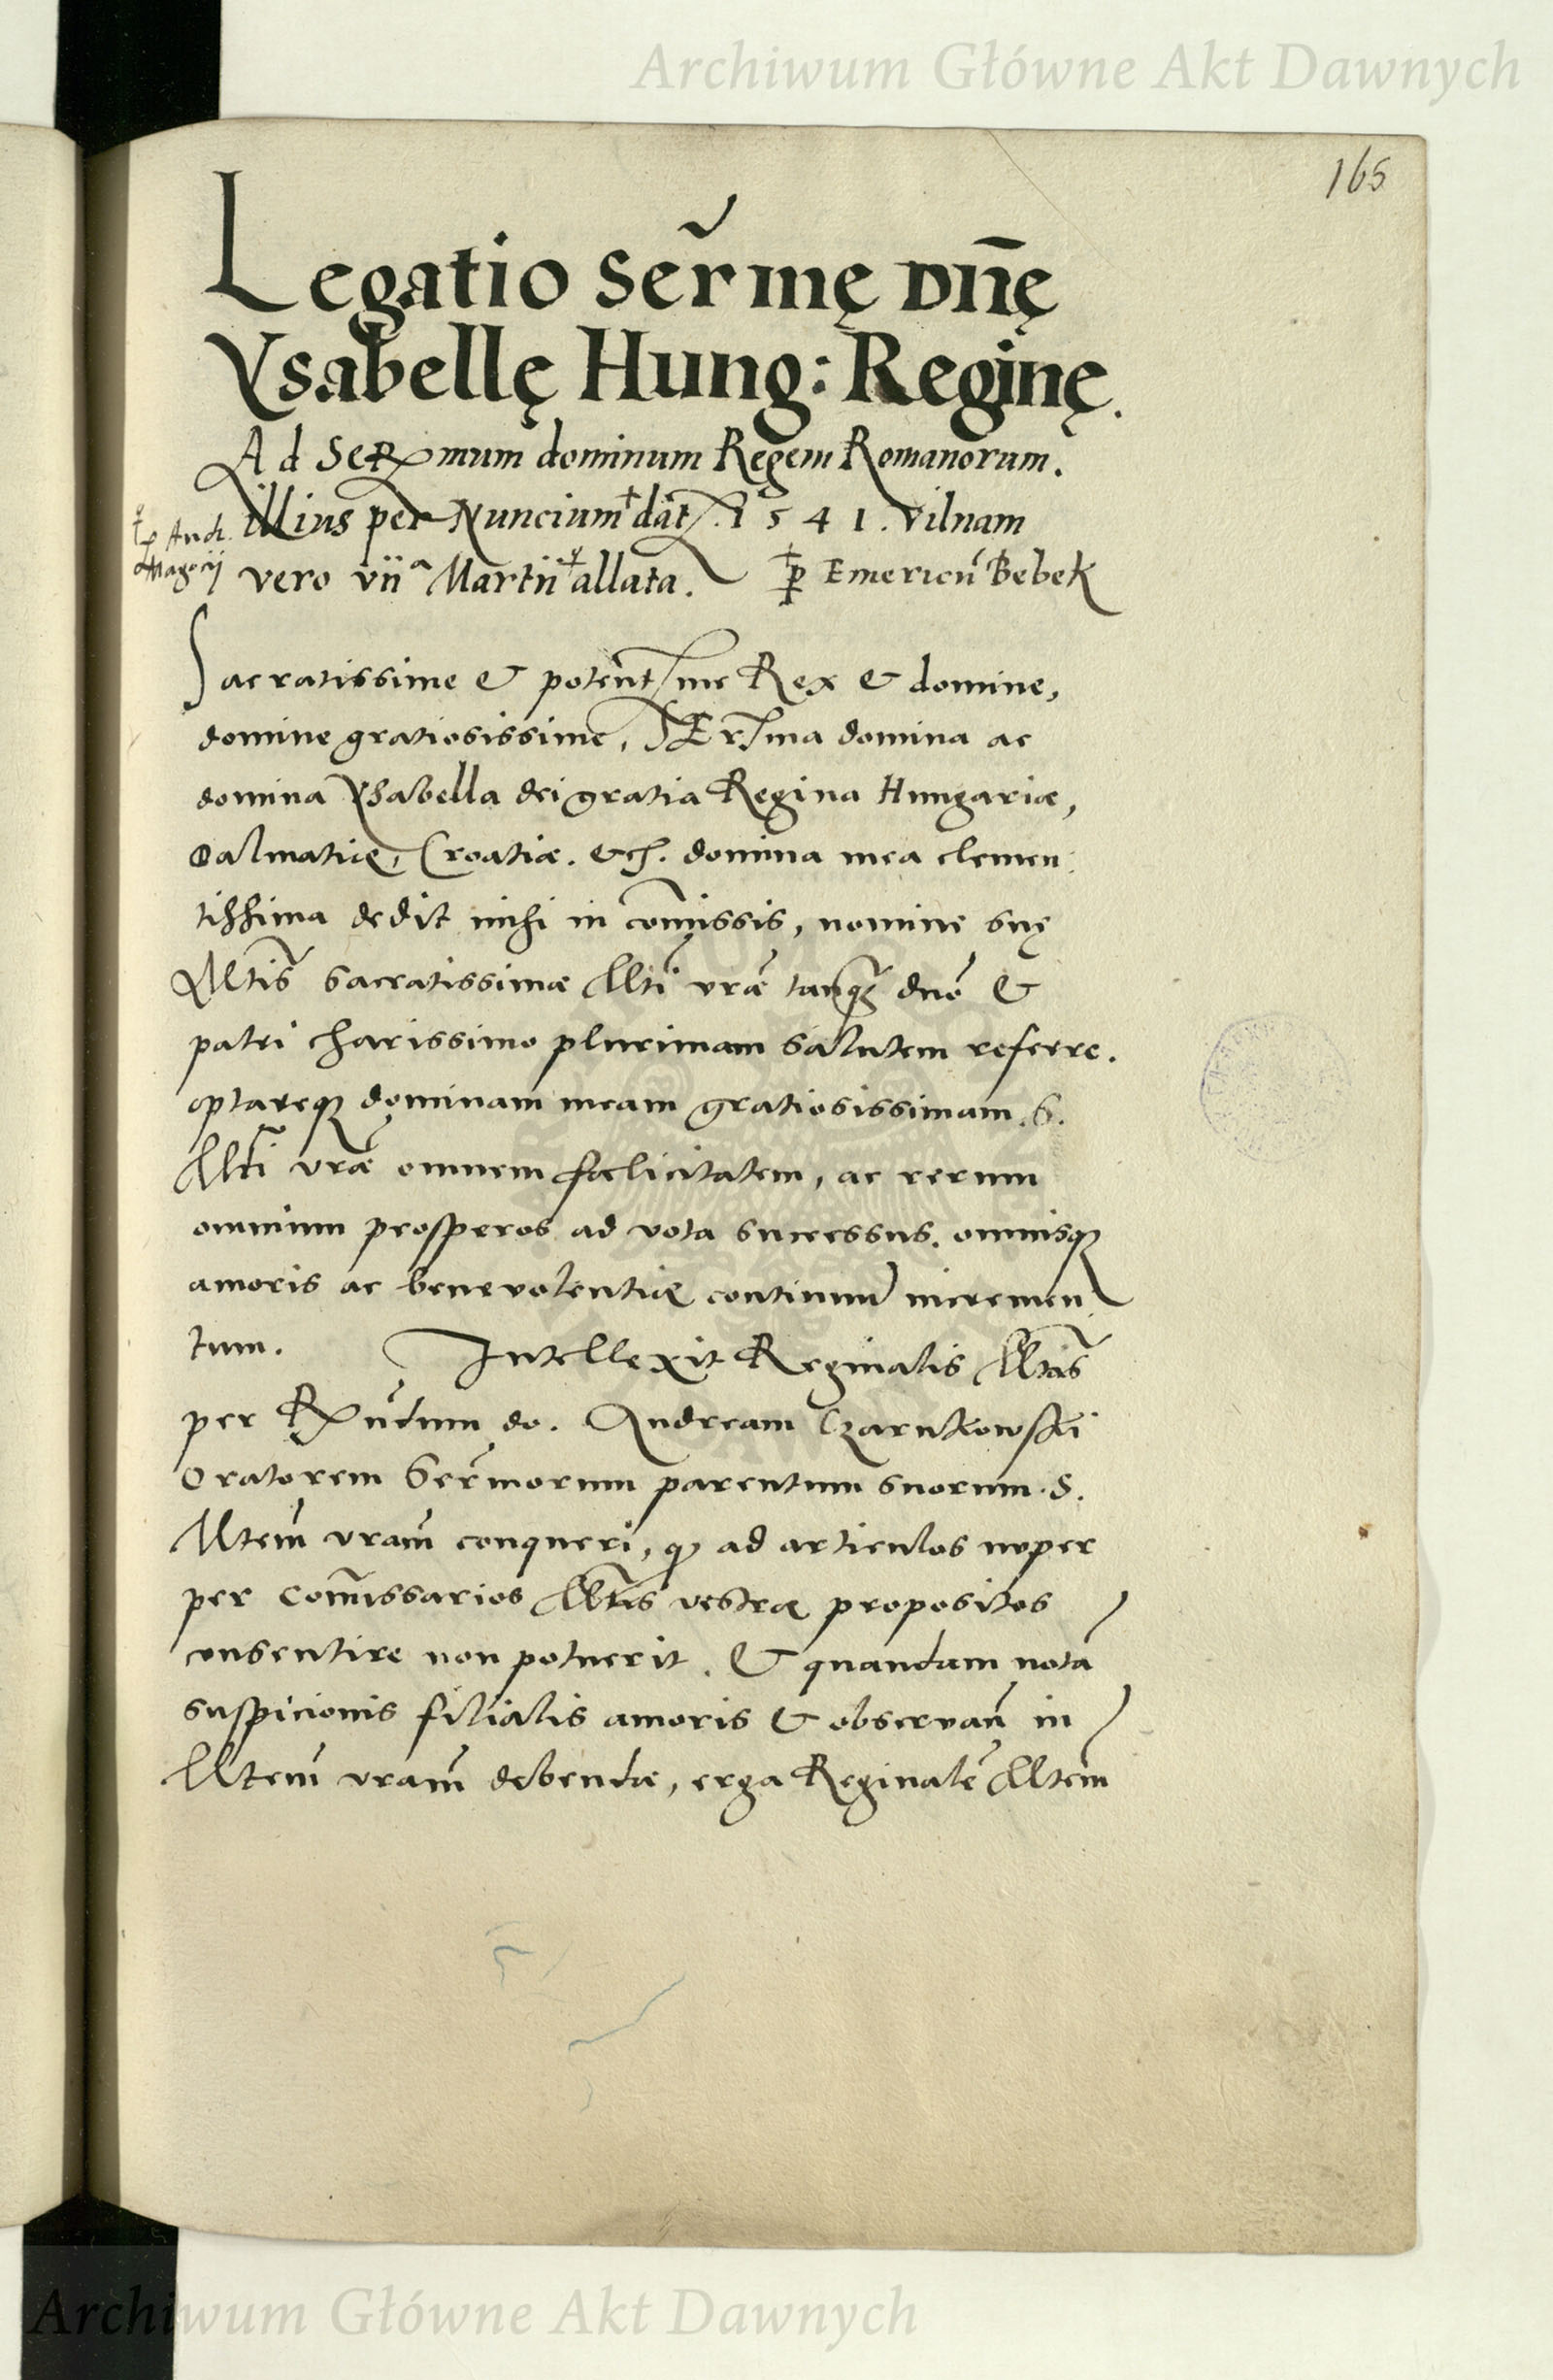 Archiwum Główne Akt Dawnych
165
Legatio Ser̃mę Dn̄ę
Ysabellę Hung: Reginę.
Ad Sermum dominum Regem Romanorum.
illius per Nuncium † dat. 1541. Vilnam
vero vii^a Martii allata. † p Emericũ Bebek
p And.
Sacratissime & potentsme Rex & domine,
domine gratiosissime, SErsma domina ac
domina Ysabella dei gratia Regina Hungariæ,
Dalmatię, Croatiæ. &c. domina mea clemen:
tissima dedit mihi in com̃issis, nomine suę
Mtis sacratissimæ Mti vrae tanq̃ dno &
patri charissimo plurimam salutem referre.
optareq dominam meam gratiosissimam. S.
Mti vrae omnem fœlicitatem, ac rerum
omnium prosperos ad vota successus. omnisq
amoris ac benevolentię continuũ incremen
tum. Intellexit Reginalis Mtas
per Rũdum do. Andream Czarnkowski
Oratorem Sermorum parentum suorum. S.
Mtem vram conqueri, q ad articulos nuper
per Com̃issarios Mtis vestræ propositos
consentire non potuerit. & quandam notã
suspicionis filialis amoris & observañ in
Mtem vram debendæ, erga Reginalẽ Mtem
Archiwum Główne Akt Dawnych